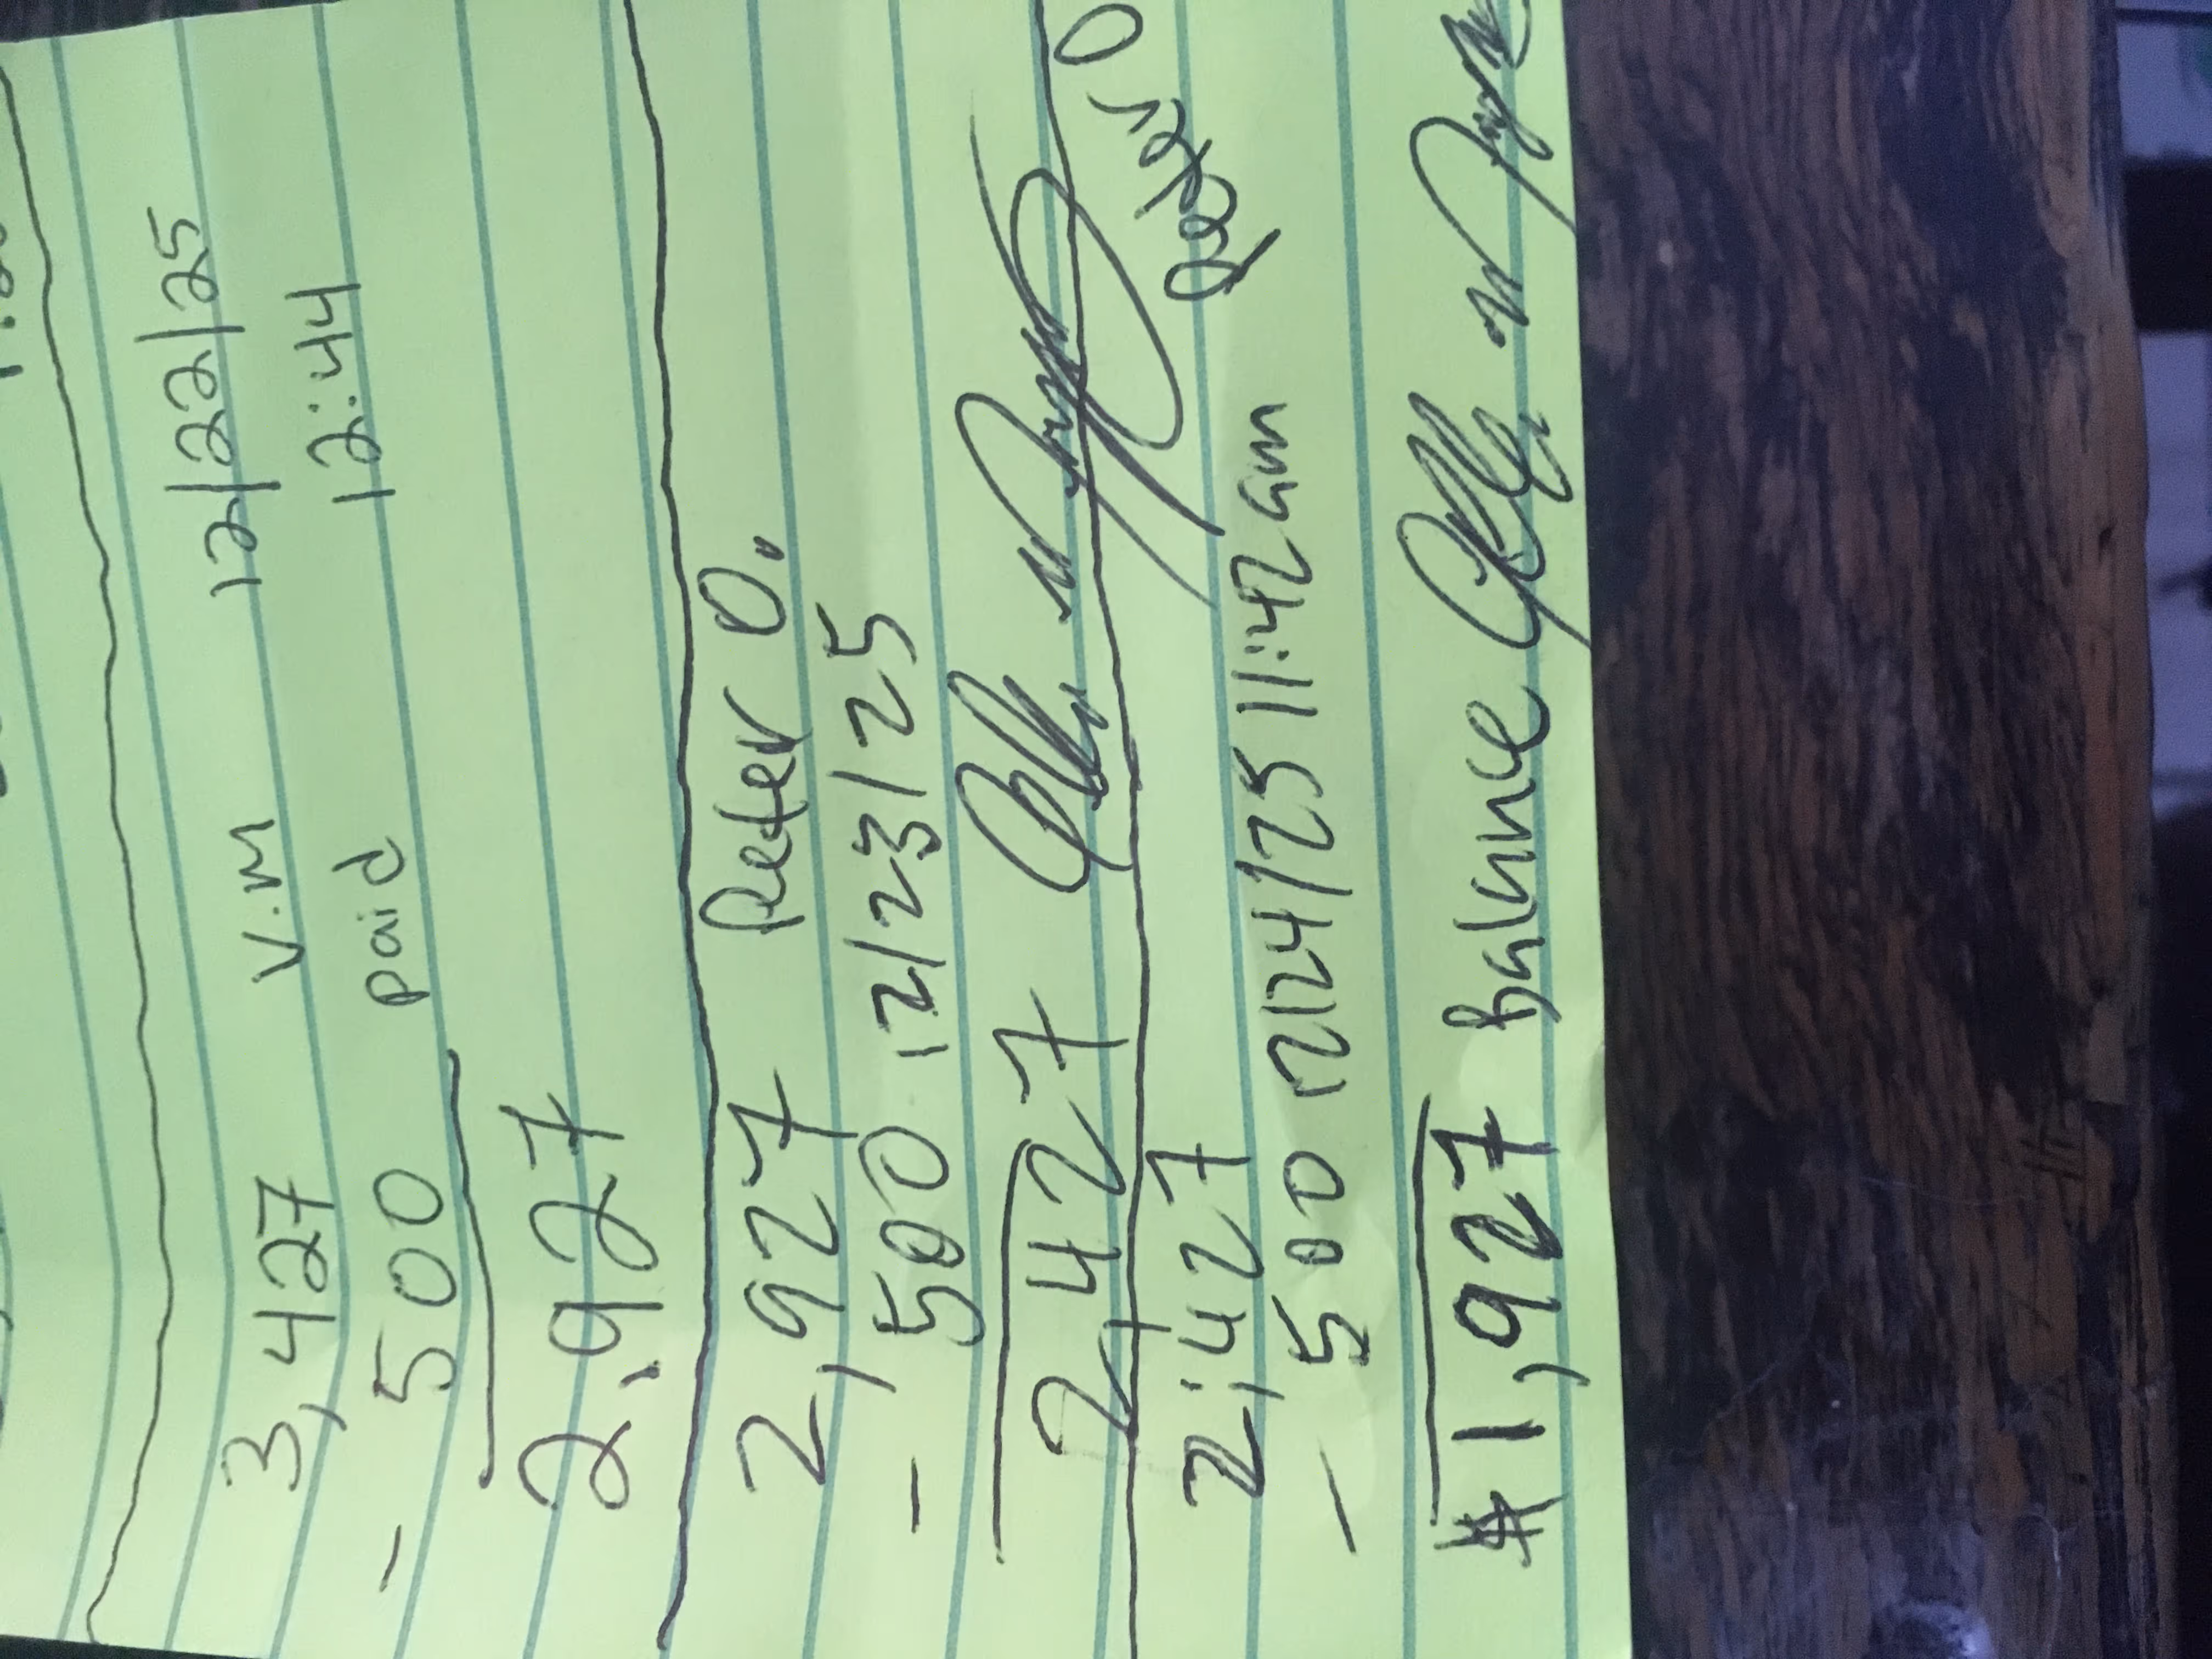 3,427 v.m 12/22/25
- 500 paid 12:44
2,927
2,927 Peter O.
- 500 12/23/25
2,427
Peter O
2,427
- 500 12/24/25 11:42am
$1,927 Balance